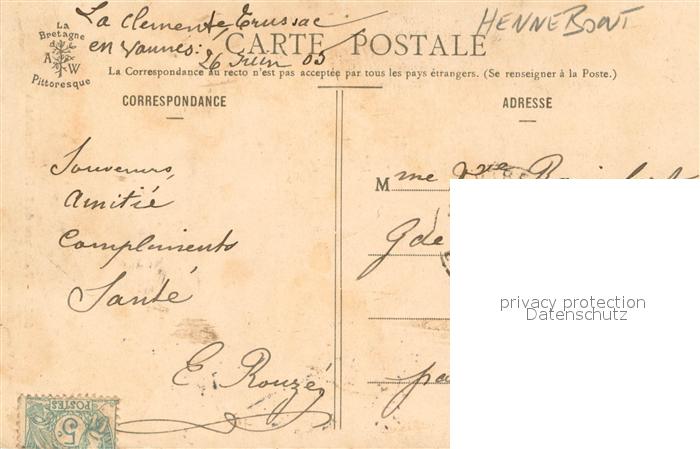 La Clemente, Trussac
en Vannes: 26 Juin 05
HENNEBONT
La
Bretagne
A W
Pittoresque
CARTE POSTALE
La Correspondance au recto n'est pas acceptée par tous les pays étrangers. (Se renseigner à la Poste.)
CORRESPONDANCE
ADRESSE
Souvenirs,
Amitié
Compliments
Santé
E. Rouzé
Mme Vve
Gde
pa
privacy protection
Datenschutz
POSTES
5